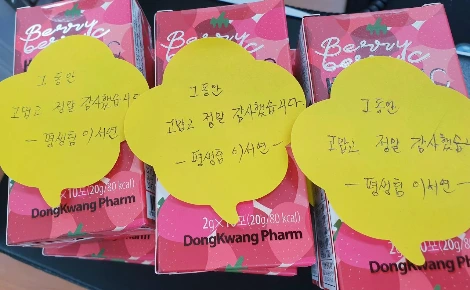 Berry
berry C
그동안
고맙고 정말 감사했습니다
- 평생팀 이서연 -
10포(20g/80 kcal)
DongKwang Pharm
Berry
berry C
그동안
고맙고 정말 감사했습니다.
- 평생팀 이서연 -
2g × 10포(20g/80 kcal)
DongKwang Pharm
Berry
그동안
고맙고 정말 감사했습
- 평생팀 이서연 -
(20g/80 kcal)
DongKwang Pharm